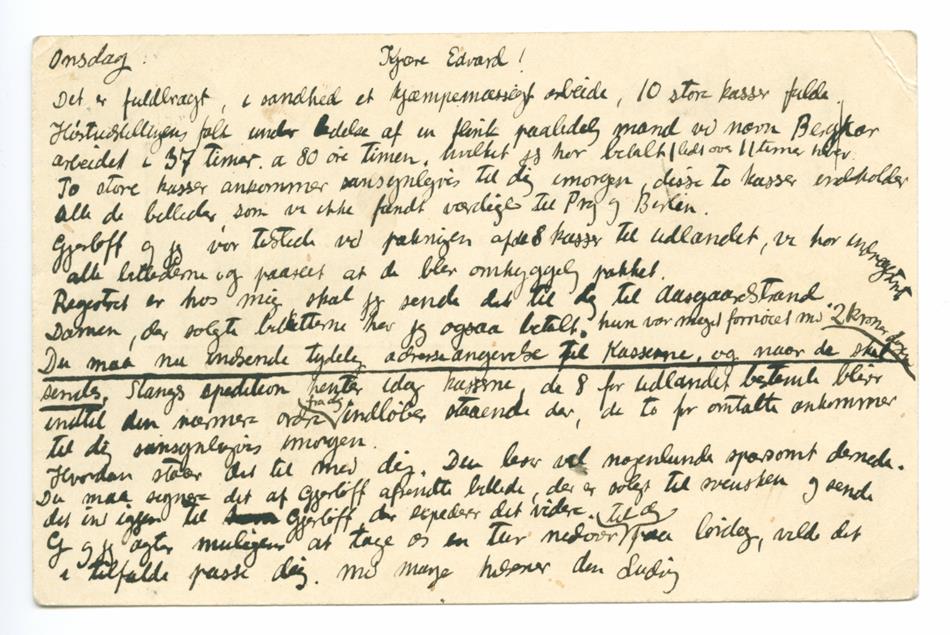 Onsdag: Kjære Edvard!
Det er fuldbragt, i sandhed et kjæmpemæssigt arbeide, 10 store kasser fulde.
Høstudstillingens folk under ledelse af en flink paalidelig mand ved navn Berg har
arbeidet i 37 timer. a 80 øre timen, hvilket jeg har betalt, 11 timer hver.
To store kasser ankommer sansynlegvis til dig imorgen, disse to kasser indeholder
alle de billeder som vi ikke fandt værdige til Prag og Berlin.
Gjerløff og jeg var tilstede ved pakningen af de 8 kasser til udlandet, vi har
alle billederne og paaseet at de blev omhyggelig pakket.
Registret er hos mig skal jeg sende det til dig til Aasgaardstrand.
Damen, der solgte billetterne har jeg ogsaa betalt. hun var meget fornøiet med 2 kroner dagen
Du maa nu indsende tydelig adresseangivelse til Kasserne, og naar de skal
sendes. Stangs spedition henter idag kasserne, de 8 for udlandet bestemte bliver
indtil den nærmere ordre fra dig indløber staaende der, de to før omtalte ankommer
til dig sansynlegvis imorgen.
Hvordan staar det til med dig. Du lever vel nogenlunde sparsomt dernede.
Du maa signere det af Gjerløff afsendte billede, der er solgt til svensken og sende
det ind iggen til Gjerløff, der expederer det videre.
Gj og jeg agter muligens at tage os en tur nedover til dig paa lørdag, vilde det
i tilfælde passe dig. med mange hilsener din Ludvig